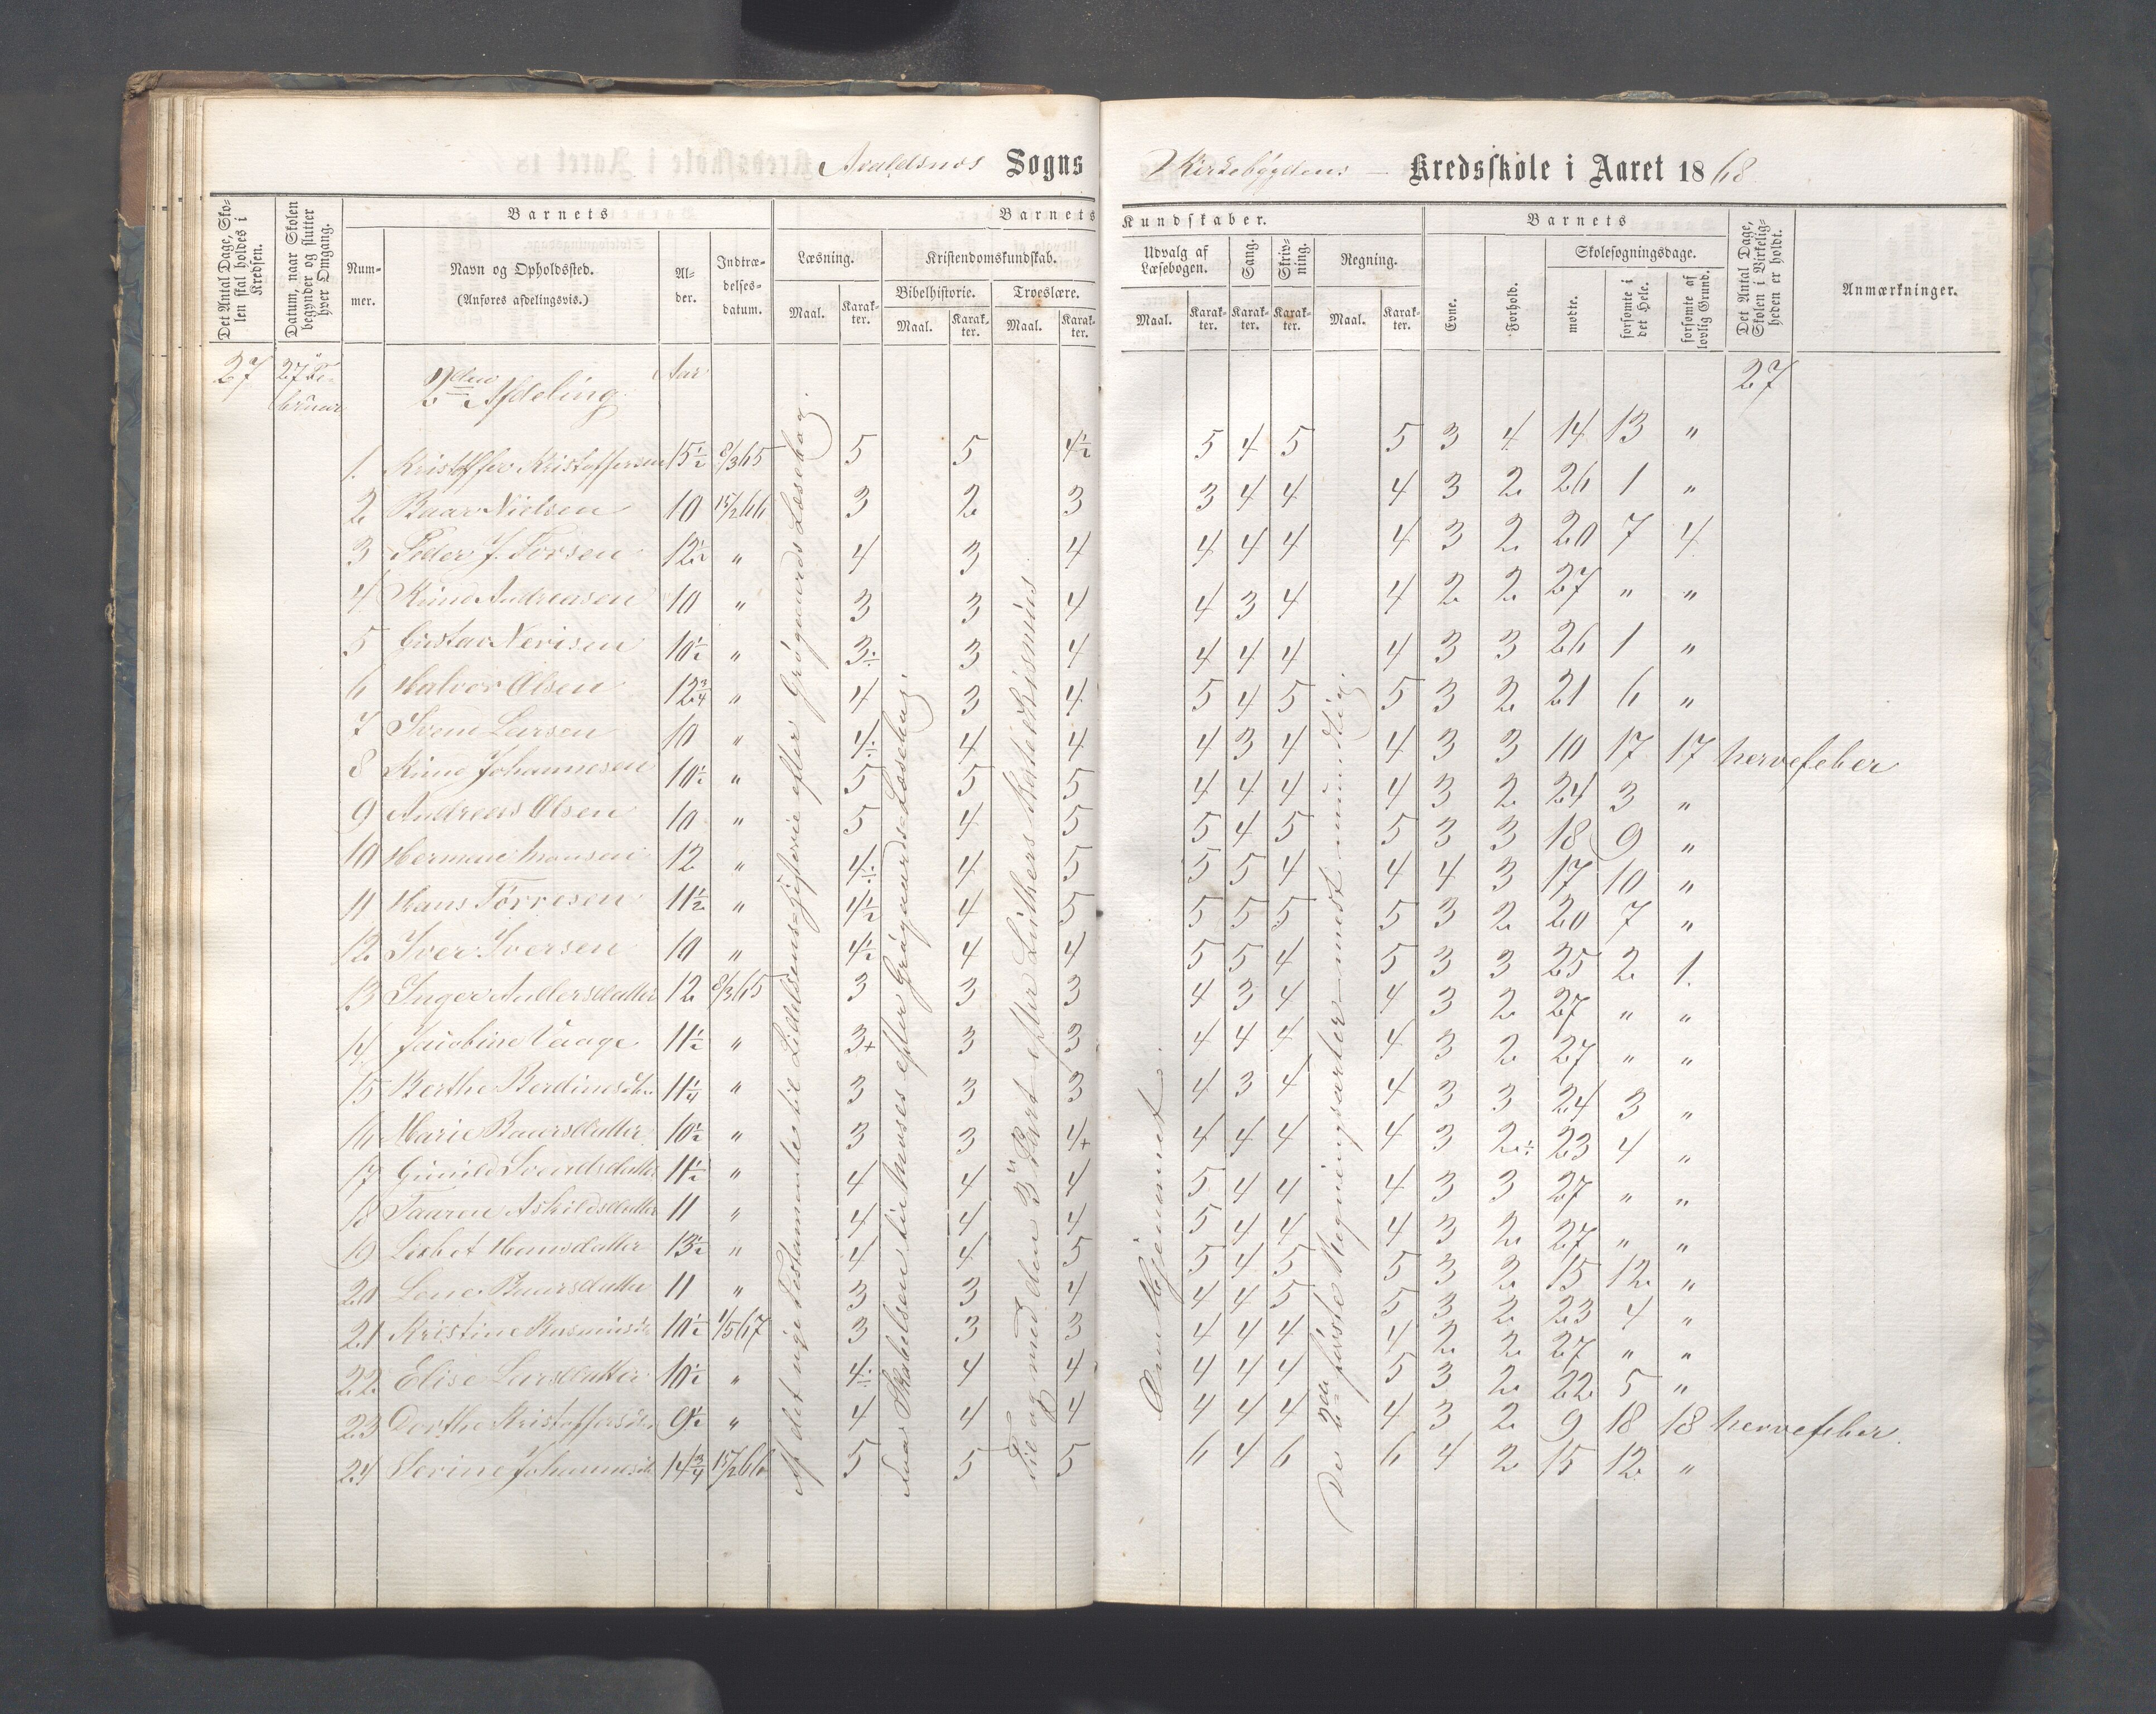 Avaldsnes Sogns
Kirkebygdens — Kredsskole i Aaret 1868
Det Antal Dage, Skolen skal holdes i Kredsen.
Datum, naar Skolen begynder og slutter hver Omgang.
Barnets
Barnets
Kundskaber.
Barnets
Det Antal Dage, Skolen i Virkeligheden er holdt.
Anmærkninger.
Nummer.
Navn og Opholdssted.
(Anføres afdelingsvis.)
Alder.
Indtrædelsesdatum.
Læsning.
Kristendomskundskab.
Bibelhistorie.
Troeslære.
Maal. Karakter. Maal. Karakter. Maal. Karakter.
Udvalg af Læsebogen.
Sang.
Skrivning.
Regning.
Maal. Karakter. Karakter. Karakter. Maal. Karakter.
Evne.
Forhold.
Skolesøgningsdage.
mødte.
forsømte i det Hele.
forsømte af lovlig Grund.
27 27 Februar 2den Afdeling Aar 27
1. Kristoffer Kristoffersen 15½ 8/3 65 5 5 4½ 5 4 5 5 3 4 14 13 "
2 Baar Nielsen 10 15/2 66 3 2 3 3 4 4 4 3 2 26 1 "
3 Peder J. Torsen 12½ " 4 3 4 4 4 4 4 3 2 20 7 4
4 Rune Andreasen 10 " 3 3 4 4 3 4 4 2 2 27 " "
5 Gustav Nerisen 10½ " 3÷ 3 4 4 4 4 4 3 3 26 1 "
6 Halvor Olsen 12¾ " 4 3 4 5 4 5 5 3 2 21 6 "
7 Svend Larsen 10 " 4÷ 4 4 4 3 4 4 3 3 10 17 17 nervefeber
8 Rune Johannesen 10½ " 5 5 5 4 4 4 4 3 2 24 3 "
9 Andreas Olsen 10 " 5 4 5 5 4 5 5 3 3 18 9 "
10 Hermene Monsen 12 " 4÷ 4 5 5 5 4 4 4 3 17 10 "
11 Hans Tørresen 11½ " 4½ 4 5 5 5 5 5 3 2 20 7 "
12 Iver Iversen 10 " 4½ 4 4 5 5 4 5 3 3 25 2 1.
13 Inger Andersdatter 12 8/3 65 3 3 3 4 3 4 4 3 2 27 " "
14 Jacobine Vaage 11½ " 3+ 3 3 4 4 4 4 3 2 27 " "
15 Berthe Berdinesdtr 11¼ " 3 3 3 4 3 4 4 3 3 24 3 "
16 Marie Baarsdatter 10½ " 3 3 4+ 4 4 4 4 3 2÷ 23 4 "
17 Gunild Svendsdatter 11½ " 4 4 4 5 4 4 4 3 3 27 " "
18 Tauren Askildsdatter 11 " 4 4 4 5 4 4 4 3 2 27 " "
19 Lisbet Hansdatter 13½ " 4 4 5 5 4 5 5 3 2 15 12 "
20 Lene Baarsdatter 11 " 3 3 4 4 4 5 5 3 2 23 4 "
21 Kristine Rasmusdtr 10½ 1/5 67 3 3 3 4 4 4 4 2 2 27 " "
22 Elise Larsdatter 10½ " 4÷ 4 4 4 4 4 5 3 2 22 5 "
23 Dorthe Kristoffersdtr 9½ " 4 4 4 4 4 4 4 3 2 9 18 18 nervefeber.
24 Serine Johannesdtr 14¾ 15/2 66 5 5 5 6 4 6 6 4 2 15 12 "
Af det nye Testamente til Lidelseshistorie efter Grøgaards Læsebog.
Fra Skabelsen til Moses efter Grøgaards Læsebog.
Til og med den 3die Part efter Luthers Katekismus
Om Hjemmet.
De 2de første Regningsarter med mundtlig.